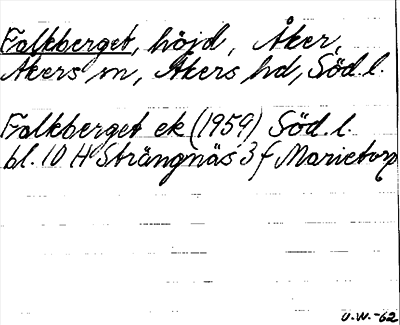 Falkberget, höjd, Åker,
Åkers sn, Åkers hd, Söd. l.
Falkberget ek (1959) Söd. l.
bl. 10 H Strängnäs 3 f Marietorp
U.W.-62